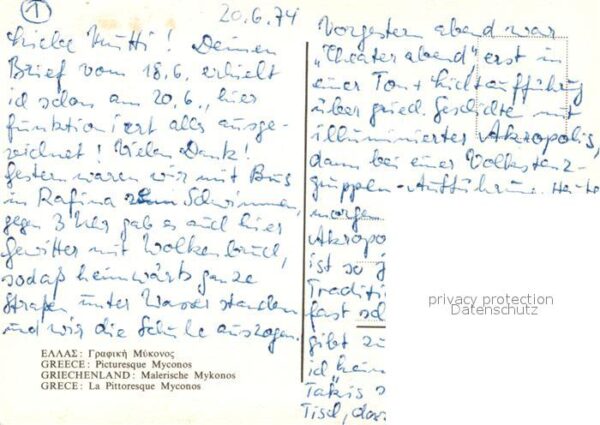 1
20.6.74
Liebe Mutti! Deinen
Brief vom 18.6. erhielt
ich schon am 20.6., hier
funktioniert alles ausge-
zeichnet! Vielen Dank!
Gestern waren wir mit Bus
in Rafina zum Schwimmen,
gegen 3 Uhr gab es auch hier
Gewitter mit Wolkenbruch,
sodaß heimwärts ganze
Straßen unter Wasser standen
und wir die Schuhe auszogen.
ΕΛΛΑΣ: Γραφική Μύκονος
GREECE: Picturesque Myconos
GRIECHENLAND: Malerische Mykonos
GRECE: La Pittoresque Myconos
Vorgestern abend war
„Theaterabend", erst in
einer Ton + Lichtaufführung
über griech. Geschichte mit
illuminierter Akropolis,
dann bei einer Volkstanz-
gruppen-Aufführung. Heute
morgen
Akropo
ist so
Traditi
fast
gibt zu
ich „
Takis s
Tisch, das
privacy protection
Datenschutz